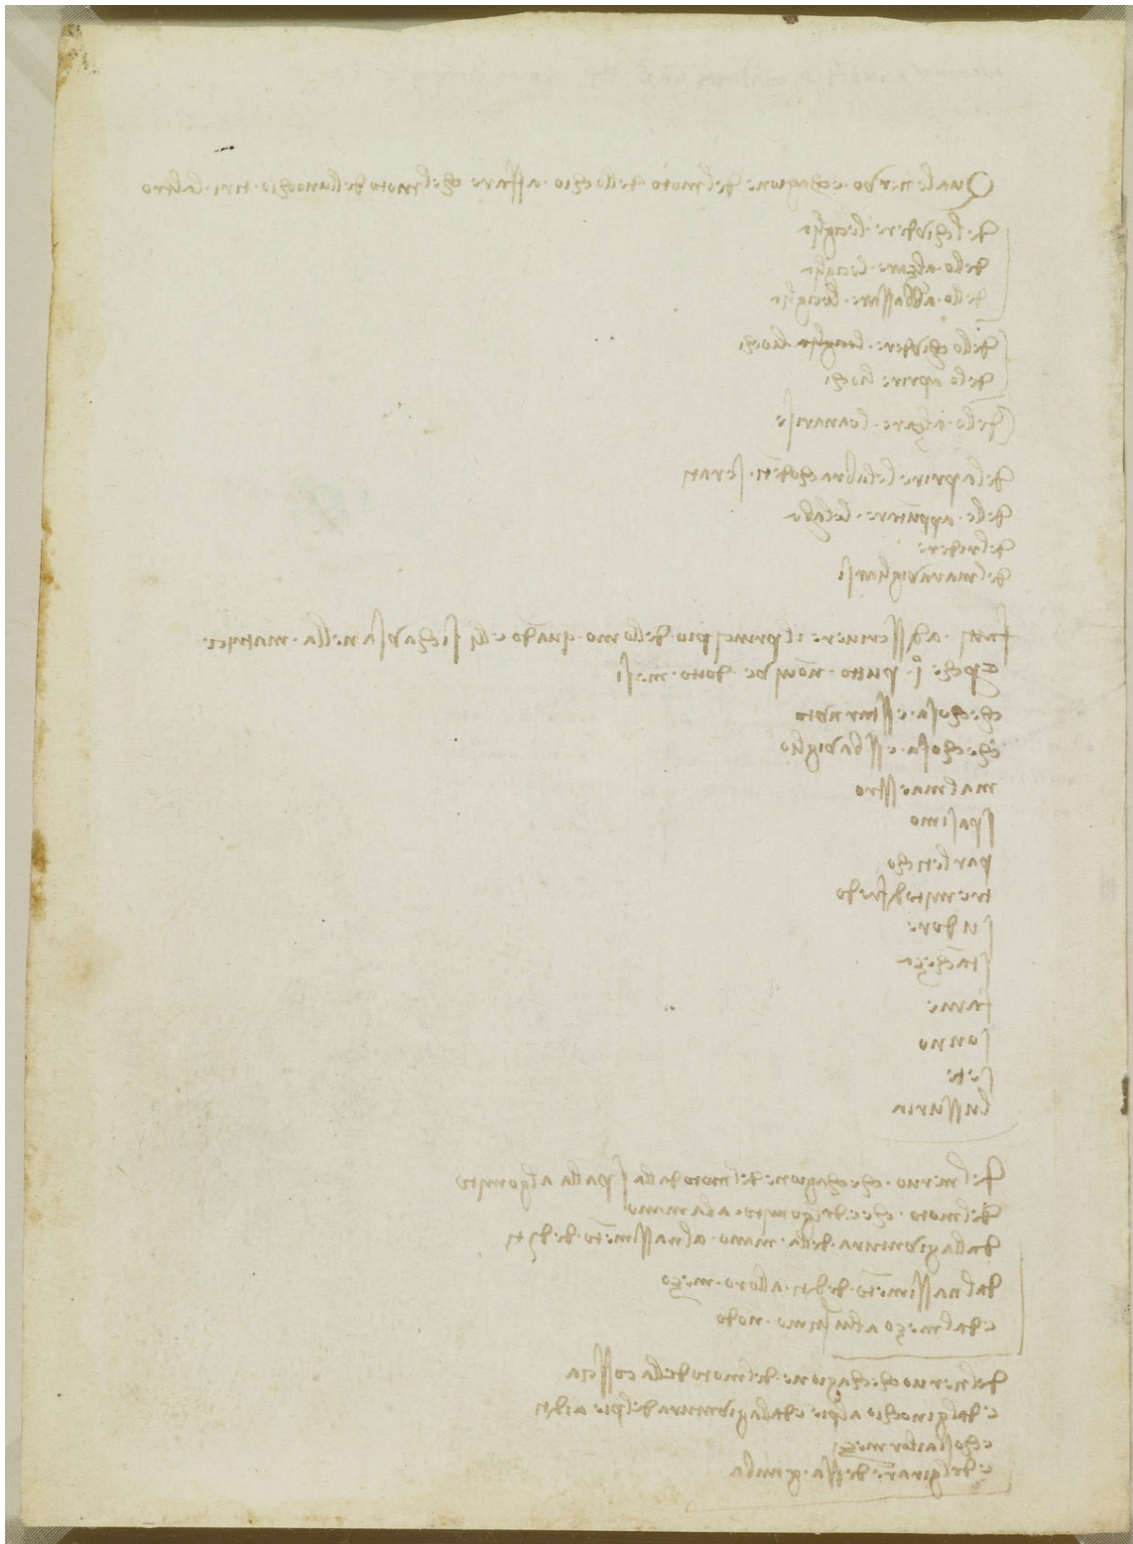 Quale nervo e chagione del moto dellochio a ffare chel moto dellunochio tiri laltro
del chiudere le ciglia
dello alzare le ciglia
dello abbassare le ciglia
dello chiudere liochi
de lo aprire liochi
dello alzare le anarise
del aprire le labra cho denti serati
dello appuntare le labra
del ridere
del maravigliarsi
a discrivere il principio dellomo quando elli si chausa nella matrice
e perche 1o putto non vive dotto mesi
che chosa e sstarnuto
che chosa e ssbadiglio
mal maesstro
spasimo
parleticho
tremito di fredo
sudore
stancheza
fame
sonno
sete
lussuria
del nervo che chagione del moto dalla spalla al gomito
del moto che e dal gomito a la mano
dalla givntura della mano al nassimento de diti
dal nassimento de diti al loro mezo
e dal mezo al lultimo nodo
del nervo che chagione del moto della cosscia
e dal ginochio al pie e dalla givntura del pie ai diti
e chosi ai lor mezi
e del girare dessa gamba